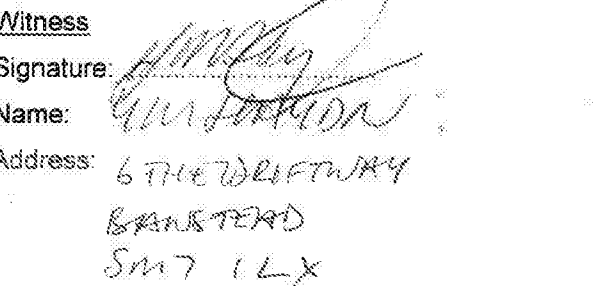 Witness
Signature:
Name:
Address: 6 THE DRIFTWAY
BANSTEAD
SM7 1LX